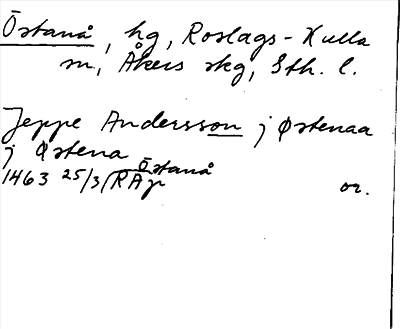 Östanå, hg, Roslags-Kulla
sn, Åkers skg, Sth. l.
Jeppe Andersson j Østenaa
j Østena
Östanå
1463 25/3 (RAp
or.